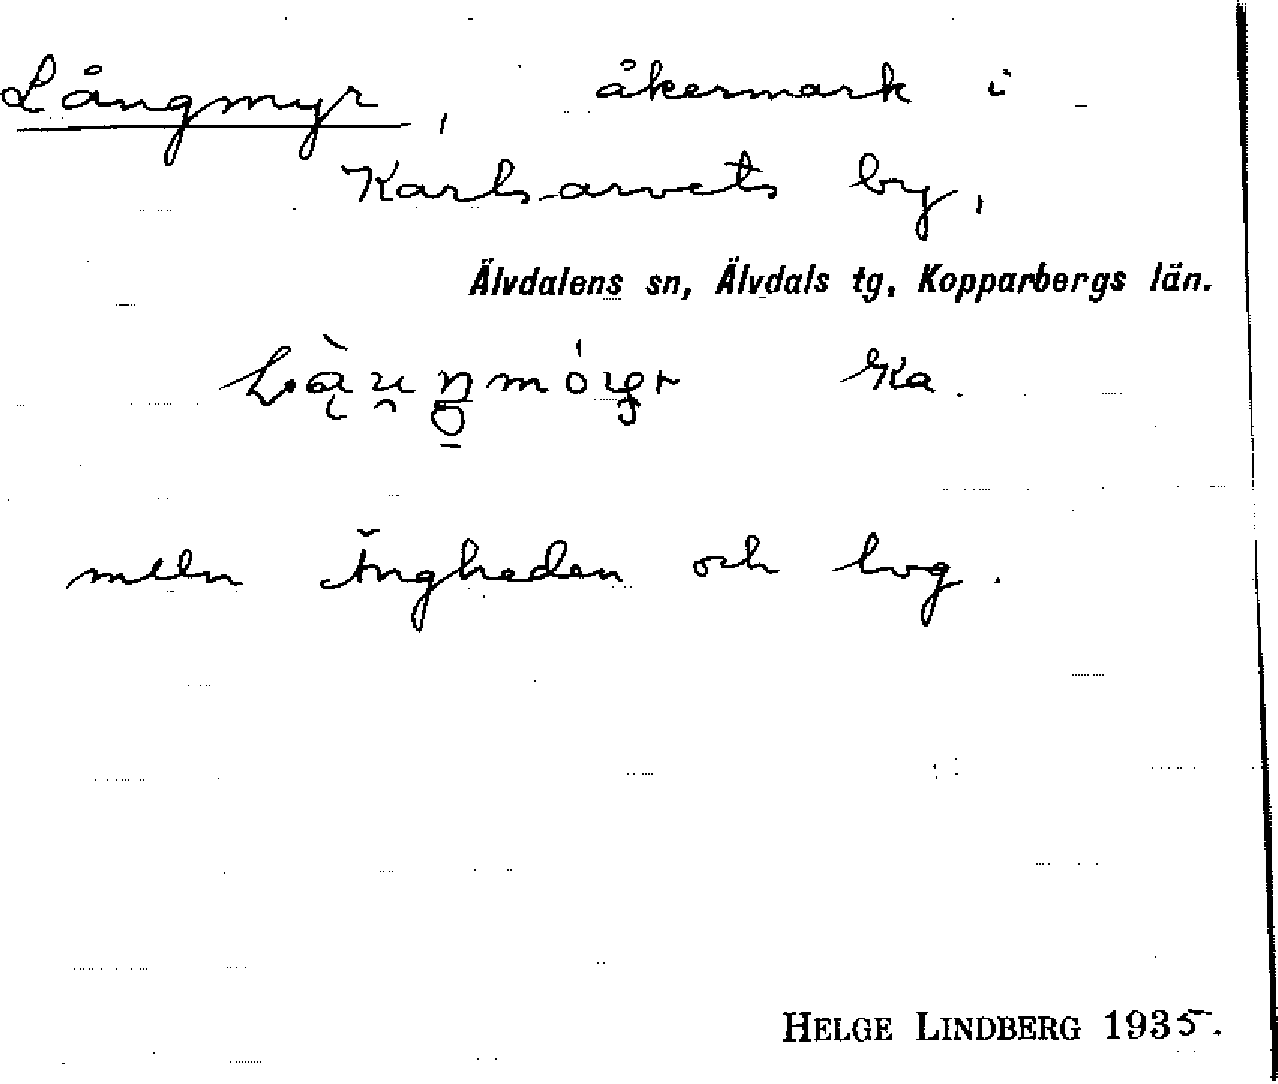 Långmyr, åkermark i
Karlsarvets by,
Älvdalens sn, Älvdals tg, Kopparbergs län.
Ka.
mlln Ängheden och lvg.
HELGE LINDBERG 1935.